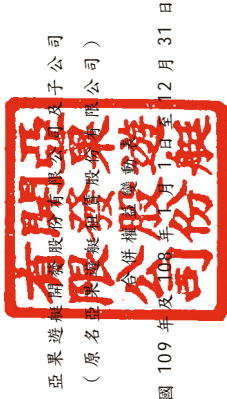 亞果遊艇開發股份有限公司及子公司
（原名亞果遊艇租售股份有限公司）
合併權益變動表
國 109 年及 108 年 1 月 1 日至 12 月 31 日
亞果遊艇
開發股份
有限公司